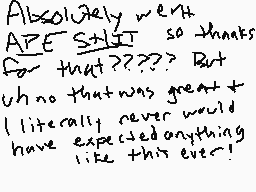 Absolutely went
APE SHIT so thanks
for that????? But
uh no that was great +
I literally never would
have expected anything
like this ever!